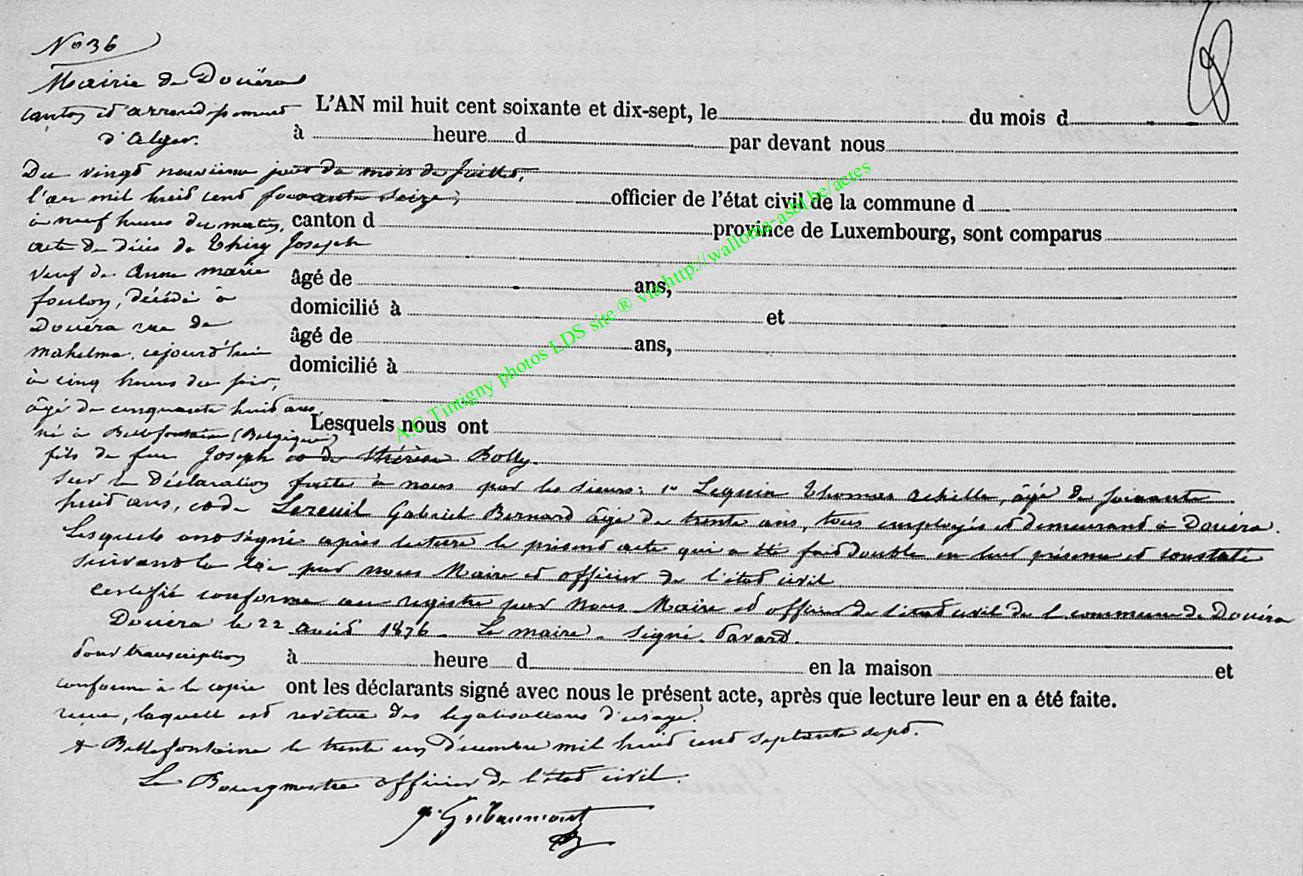 N° 36
Mairie de Douëra
canton et arrondissement
d'Alger.
L'AN mil huit cent soixante et dix-sept, le du mois d
à heure d par devant nous
Du vingt neuvième jour du mois de
l'an mil huit cent soixante seize,
officier de l'état civil de la commune d
à neuf heures du matin,
canton d province de Luxembourg, sont comparus
acte de décès de Thiry Joseph
veuf de Anne marie
âgé de ans,
foulon, décédé à
domicilié à et
Douéra rue de
âgé de ans,
mahelma, cejourd'hui
domicilié à
à cinq heures du soir,
âgé de cinquante huit ans,
Lesquels nous ont
né à Bellefontaine (Belgique)
fils de feu Joseph et de thérèse Rolly.
sur la déclaration faite à nous par les sieurs: 1° Lequin Thomas achille, âgé de soixante
huit ans, et de Lereuil Gabriel Bernard âgé de trente ans, tous employés et demeurant à Douéra.
Lesquels ont signé après lecture le présent acte qui a été fait double en leur présence et constaté
suivant la loi par nous Maire et officier de l'état civil
certifié conforme au registre par Nous Maire et officier de l'état civil de la commune de Douéra
Douéra le 22 1876. Le maire. signé
Pour transcription
à heure d en la maison et
conforme à la copie
ont les déclarants signé avec nous le présent acte, après que lecture leur en a été faite.
reçue, laquelle est revêtue des légalisations d'usage.
A Bellefontaine le trente un Décembre mil huit cent septante sept.
Le Bourgmestre officier de l'état civil.
A.C Tintigny photos LDS site ® via http://wallonia-asbl.be/actes